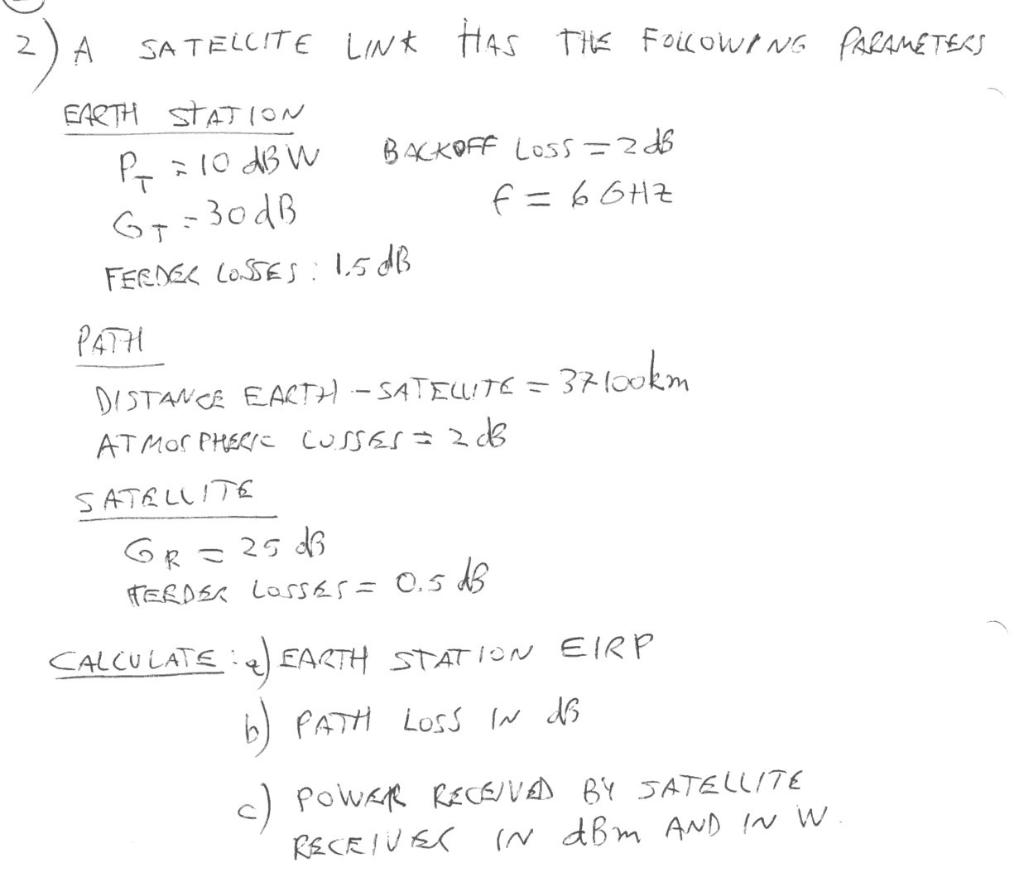 2) A SATELLITE LINK HAS THE FOLLOWING PARAMETERS
EARTH STATION
P_T = 10 dBW BACKOFF LOSS = 2 dB
G_T = 30 dB f = 6 GHZ
FEEDER LOSSES : 1.5 dB
PATH
DISTANCE EARTH - SATELLITE = 37100km
ATMOSPHERIC LOSSES = 2 dB
SATELLITE
G_R = 25 dB
FEEDER LOSSES = 0.5 dB
CALCULATE : a) EARTH STATION EIRP
b) PATH LOSS IN dB
c) POWER RECEIVED BY SATELLITE
RECEIVER IN dBm AND IN W.